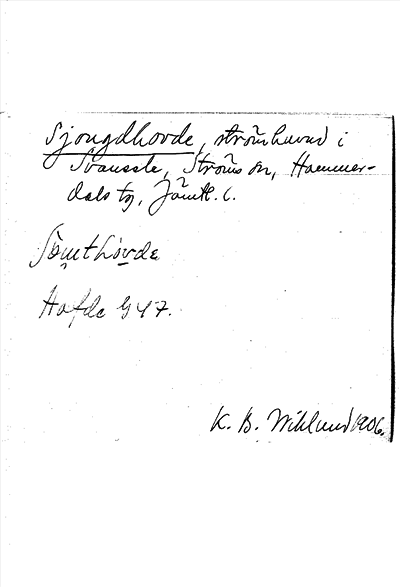 Sjougdhovde, strömhuvud i
Svaussle, Ströms sn, Hammer-
dals tg, Jämtl. l.
Hofde G 47.
K. B. Wiklund 1906.